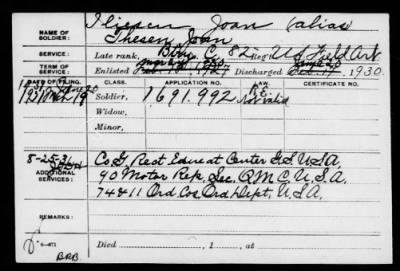 NAME OF SOLDIER: Iliesen Joan (alias
Thesen, Joan
SERVICE: Late rank, Btry C. 82 Reg't U.S. Field Art
TERM OF SERVICE: Enlisted 1927 Discharged 1930.
DATE OF FILING. CLASS. APPLICATION NO. LAW. CERTIFICATE NO.
1931 Soldier, 1691.992
Not valid
Widow,
Minor,
8-25-31
ADDITIONAL SERVICES: Co G, Rect Educat Center G.S. U.S.A.
90 Motor Rep. Sec. Q.M.C. U.S.A.
74&11 Ord. Cos, Ord. Dept, U.S.A.
Died , 1 , at
BRB